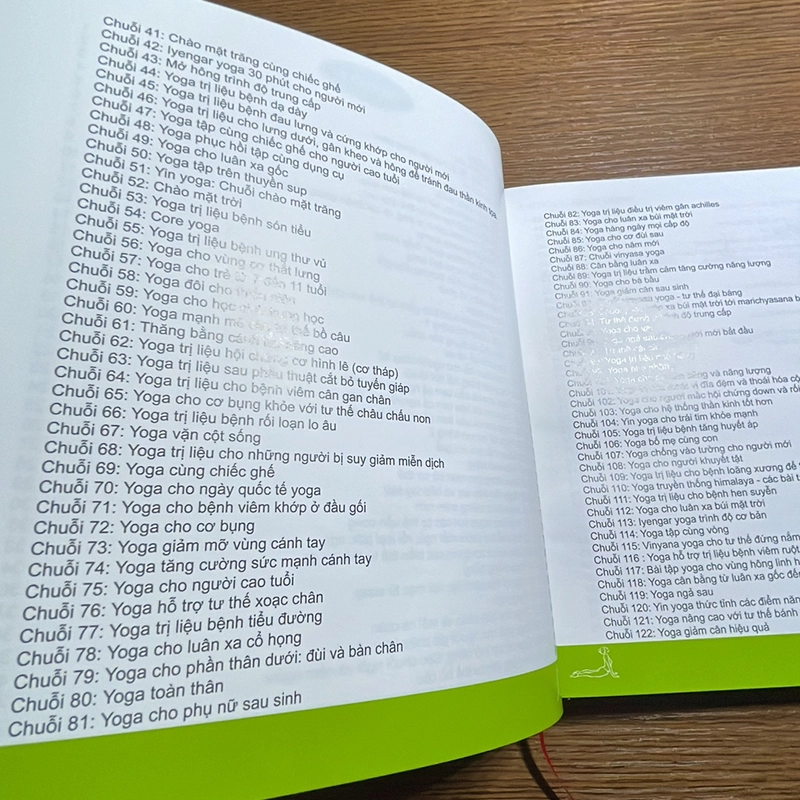 Chuỗi 41: Chào mặt trăng cùng chiếc ghế
Chuỗi 42: Iyengar yoga 30 phút cho người mới
Chuỗi 43: Mở hông trình độ trung cấp
Chuỗi 44: Yoga trị liệu bệnh dạ dày
Chuỗi 45: Yoga trị liệu bệnh đau lưng và cứng khớp cho người mới
Chuỗi 46: Yoga trị liệu cho lưng dưới, gân kheo và hông để tránh đau thần kinh tọa
Chuỗi 47: Yoga tập cùng chiếc ghế cho người cao tuổi
Chuỗi 48: Yoga phục hồi tập cùng dụng cụ
Chuỗi 49: Yoga cho luân xa gốc
Chuỗi 50: Yoga tập trên thuyền sup
Chuỗi 51: Yin yoga: Chuỗi chào mặt trăng
Chuỗi 52: Chào mặt trời
Chuỗi 53: Yoga trị liệu bệnh són tiểu
Chuỗi 54: Core yoga
Chuỗi 55: Yoga trị liệu bệnh ung thư vú
Chuỗi 56: Yoga cho vùng cơ thắt lưng
Chuỗi 57: Yoga cho trẻ từ 7 đến 11 tuổi
Chuỗi 58: Yoga đôi cho
Chuỗi 59: Yoga cho học học
Chuỗi 60: Yoga mạnh mẽ thế bồ câu
Chuỗi 61: Thăng bằng cánh cao
Chuỗi 62: Yoga trị liệu hội chứng cơ hình lê (cơ tháp)
Chuỗi 63: Yoga trị liệu sau phẫu thuật cắt bỏ tuyến giáp
Chuỗi 64: Yoga trị liệu cho bệnh viêm cân gan chân
Chuỗi 65: Yoga cho cơ bụng khỏe với tư thế châu chấu non
Chuỗi 66: Yoga trị liệu bệnh rối loạn lo âu
Chuỗi 67: Yoga vặn cột sống
Chuỗi 68: Yoga trị liệu cho những người bị suy giảm miễn dịch
Chuỗi 69: Yoga cùng chiếc ghế
Chuỗi 70: Yoga cho ngày quốc tế yoga
Chuỗi 71: Yoga cho bệnh viêm khớp ở đầu gối
Chuỗi 72: Yoga cho cơ bụng
Chuỗi 73: Yoga giảm mỡ vùng cánh tay
Chuỗi 74: Yoga tăng cường sức mạnh cánh tay
Chuỗi 75: Yoga cho người cao tuổi
Chuỗi 76: Yoga hỗ trợ tư thế xoạc chân
Chuỗi 77: Yoga trị liệu bệnh tiểu đường
Chuỗi 78: Yoga cho luân xa cổ họng
Chuỗi 79: Yoga cho phần thân dưới: đùi và bàn chân
Chuỗi 80: Yoga toàn thân
Chuỗi 81: Yoga cho phụ nữ sau sinh
Chuỗi 82: Yoga trị liệu điều trị viêm gân achilles
Chuỗi 83: Yoga cho luân xa búi mặt trời
Chuỗi 84: Yoga hàng ngày mọi cấp độ
Chuỗi 85: Yoga cho cơ đùi sau
Chuỗi 86: Yoga cho năm mới
Chuỗi 87: Chuỗi vinyasa yoga
Chuỗi 88: Cân bằng luân xa
Chuỗi 89: Yoga trị liệu trầm cảm tăng cường năng lượng
Chuỗi 90: Yoga cho bà bầu
Chuỗi 91: Yoga giảm cân sau sinh
yoga - tư thế đại bàng
xa búi mặt trời tới marichyasana b
độ trung cấp
người mới bắt đầu
và năng lượng
đĩa đệm và thoái hóa cộ
Chuỗi 102: người mắc hội chứng down và rối
Chuỗi 103: Yoga cho hệ thống thần kinh tốt hơn
Chuỗi 104: Yin yoga cho trái tim khỏe mạnh
Chuỗi 105: Yoga trị liệu bệnh tăng huyết áp
Chuỗi 106: Yoga bố mẹ cùng con
Chuỗi 107: Yoga chống vào tường cho người mới
Chuỗi 108: Yoga cho người khuyết tật
Chuỗi 109: Yoga trị liệu cho bệnh loãng xương để
Chuỗi 110: Yoga truyền thống himalaya - các bài t
Chuỗi 111: Yoga trị liệu cho bệnh hen suyễn
Chuỗi 112: Yoga cho luân xa búi mặt trời
Chuỗi 113: Iyengar yoga trình độ cơ bản
Chuỗi 114: Yoga tập cùng vòng
Chuỗi 115: Vinyana yoga cho tư thế đứng nắm
Chuỗi 116 : Yoga hỗ trợ trị liệu bệnh viêm ruột
Chuỗi 117: Bài tập yoga cho vùng hông linh h
Chuỗi 118: Yoga cân bằng từ luân xa gốc đến
Chuỗi 119: Yoga ngả sau
Chuỗi 120: Yin yoga thức tỉnh các điểm năn
Chuỗi 121: Yoga nâng cao với tư thế bánh
Chuỗi 122: Yoga giảm cân hiệu quả